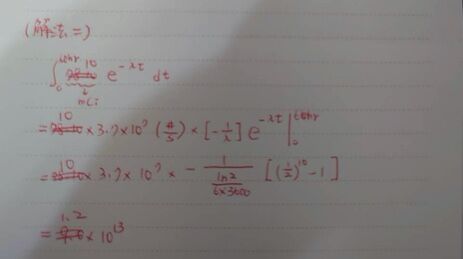 (解法二)
∫₀^60hr 10 e^-λt dt
mCi
= 10 × 3.7 × 10⁷ (#/s) × [-1/λ] e^-λt |₀^60hr
= 10 × 3.7 × 10⁷ × - 1/(ln2/(6×3600)) [(1/2)^10 - 1]
= 1.2 × 10^13